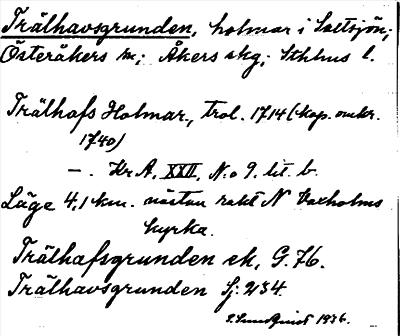 Trälhavsgrunden, holmar i Saltsjön;
Österåkers sn; Åkers skg; Sthlms l.
Trälhafs Holmar, trol. 1714 (kop. omkr.
1740)
—. Kr A, XXII, N:o 9. lit. b.
Läge 4,1 km. nästan rakt N Vaxholms
kyrka.
Trälhafsgrunden ek, G. 76.
Trälhavsgrunden Sj: 234.
S. Sundquist 1936.